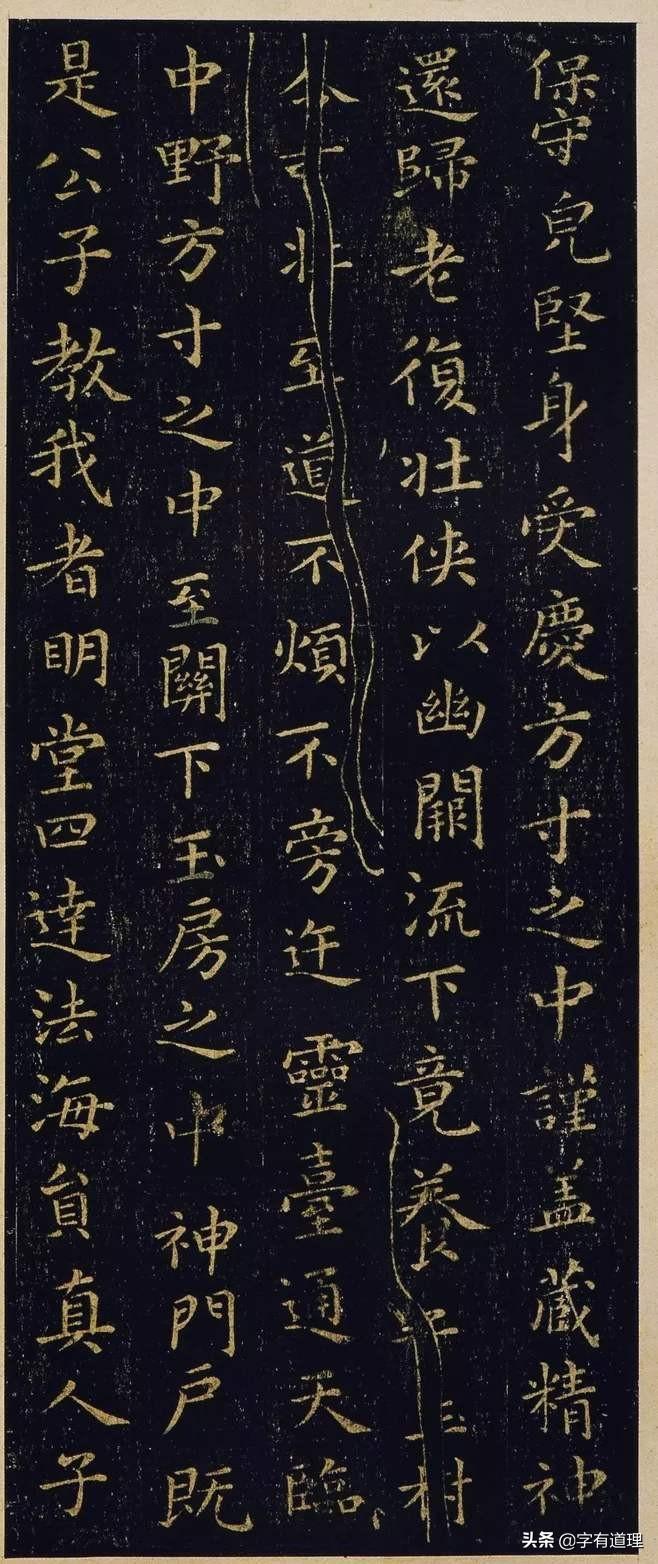 保守皃堅身受慶方寸之中謹盖藏精神
還歸老復壯侠以幽闕流下竟養村
可至道不煩不旁迕靈臺通天臨
中野方寸之中至關下玉房之中神門戶既
是公子教我者明堂四達法海貟真人子
头条 @字有道理